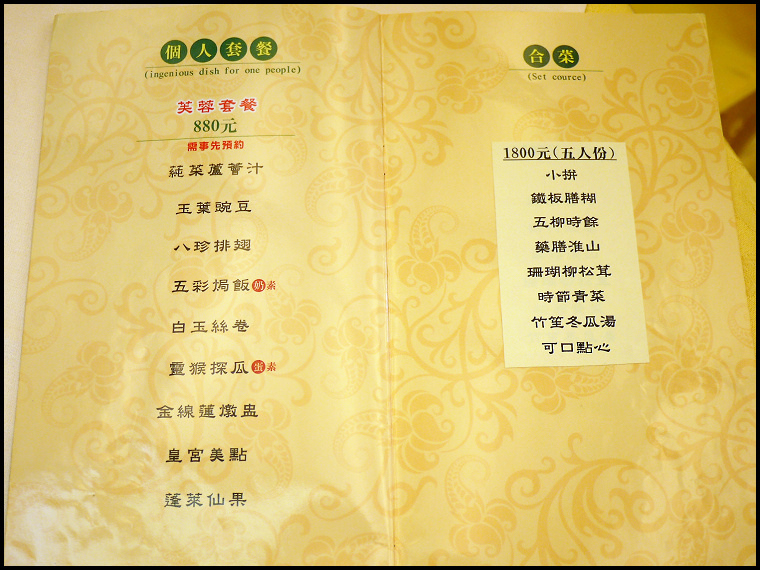 個人套餐
(ingenious dish for one people)
芙蓉套餐
880元
需事先預約
蒓菜蘆薈汁
玉葉豌豆
八珍排翅
五彩焗飯 奶素
白玉絲卷
靈猴探瓜 蛋素
金線蓮燉盅
皇宮美點
蓬萊仙果
合菜
(Set cource)
1800元(五人份)
小拼
鐵板膳糊
五柳時餘
藥膳淮山
珊瑚柳松茸
時節青菜
竹笙冬瓜湯
可口點心